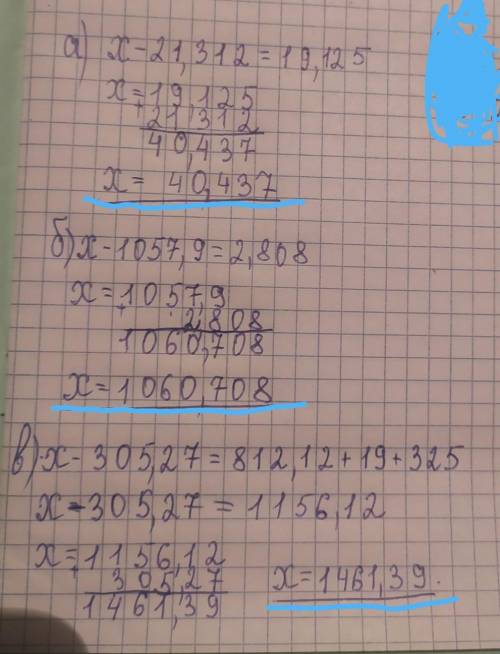 а) x - 21,312 = 19,125
x = 19,125
+ 21,312
40,437
x = 40,437
б) x - 1057,9 = 2,808
x = 1057,9
+ 2,808
1060,708
x = 1060,708
в) x - 305,27 = 812,12 + 19 + 325
x - 305,27 = 1156,12
x = 1156,12
+ 305,27
1461,39
x = 1461,39.